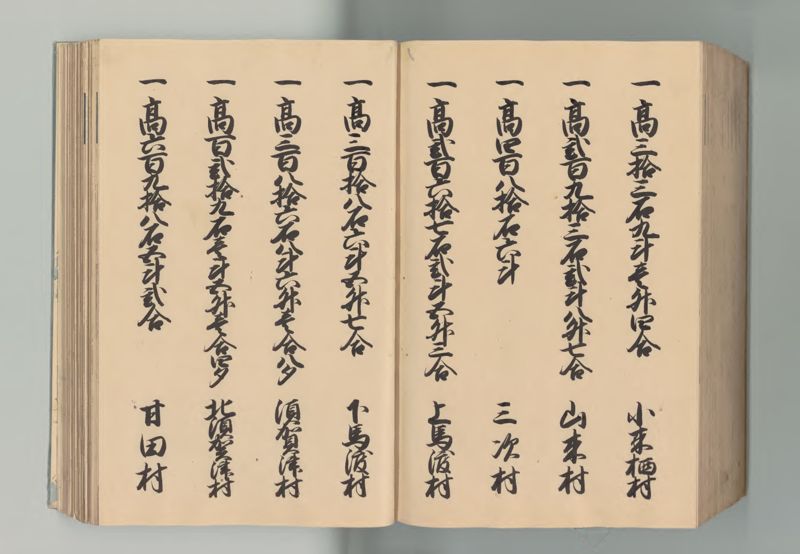 一 高三拾三石九斗壱升四合 小来栖村
一 高弐百九拾三石弐斗八升七合 山来村
一 高四百八拾石六斗 三次村
一 高弐百六拾七石弐斗五升三合 上馬渡村
一 高三百拾八石六斗五升七合 下馬渡村
一 高三百八拾六石八斗六升壱合八夕 須賀津村
一 高百弐拾九石壱斗五升壱合四夕 北須賀津村
一 高六百九拾八石五斗弐合 甘田村